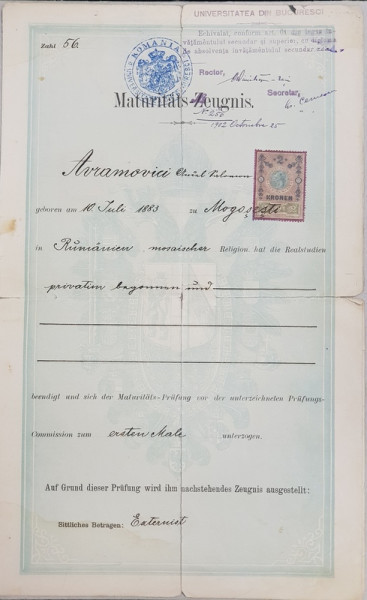 UNIVERSITATEA DIN BUCURESCI
Echivalat, conform art.
învățământului secundar și superior, cu
de absolvența învățământului secundar
Zahl 56.
ROMANIA
Rector,
Secretar,
Maturitäts-Zeugnis.
N 256
1912 Octombrie 25
Avramovici
2
KRONEN
geboren am 10. Juli 1883 zu Mogosesti
in Rumänien mosaischer Religion, hat die Realstudien
privatim begonnen und
beendigt und sich der Maturitäts-Prüfung vor der unterzeichneten Prüfungs-
Commission zum ersten Male unterzogen.
Auf Grund dieser Prüfung wird ihm nachstehendes Zeugnis ausgestellt:
Sittliches Betragen: Externist